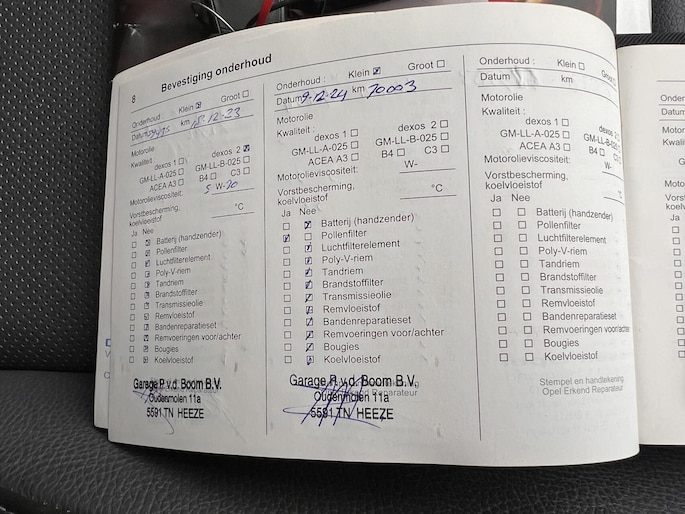 8 Bevestiging onderhoud
Onderhoud : Klein ☒ Groot ☐
Datum km 18-12-23
Motorolie
Kwaliteit
dexos 1 ☐ dexos 2 ☒
GM-LL-A-025 ☐ GM-LL-B-025 ☐
ACEA A3 ☐ B4 ☐ C3 ☐
Motorolieviscositeit: 5 W-20
Vorstbescherming,
koelvloeistof °C
Ja Nee
☐ ☒ Batterij (handzender)
☐ ☒ Pollenfilter
☐ ☒ Luchtfilterelement
☐ ☒ Poly-V-riem
☐ ☒ Tandriem
☐ ☒ Brandstoffilter
☐ ☒ Transmissieolie
☐ ☒ Remvloeistof
☐ ☒ Bandenreparatieset
☐ ☒ Remvoeringen voor/achter
☐ ☒ Bougies
☐ ☒ Koelvloeistof
Garage P. v.d. Boom B.V.
Oudenmolen 11a
5591 TN HEEZE
Onderhoud : Klein ☒ Groot ☐
Datum 9-12-24 km 70003
Motorolie
Kwaliteit :
dexos 1 ☐ dexos 2 ☐
GM-LL-A-025 ☐ GM-LL-B-025 ☐
ACEA A3 ☐ B4 ☐ C3 ☐
Motorolieviscositeit: W-
Vorstbescherming,
koelvloeistof °C
Ja Nee
☐ ☒ Batterij (handzender)
☒ ☐ Pollenfilter
☐ ☒ Luchtfilterelement
☐ ☒ Poly-V-riem
☐ ☒ Tandriem
☐ ☒ Brandstoffilter
☐ ☒ Transmissieolie
☐ ☒ Remvloeistof
☐ ☒ Bandenreparatieset
☐ ☒ Remvoeringen voor/achter
☐ ☒ Bougies
☐ ☒ Koelvloeistof
Garage P. v.d. Boom B.V.
Oudenmolen 11a
Reparateur
5591 TN HEEZE
Onderhoud : Klein ☐ Groot
Datum km
Motorolie
Kwaliteit :
dexos 1 ☐ dexos
GM-LL-A-025 ☐ GM-LL-B-025
ACEA A3 ☐ B4 ☐ C3
Motorolieviscositeit: W-
Vorstbescherming,
koelvloeistof °C
Ja Nee
☐ ☐ Batterij (handzender)
☐ ☐ Pollenfilter
☐ ☐ Luchtfilterelement
☐ ☐ Poly-V-riem
☐ ☐ Tandriem
☐ ☐ Brandstoffilter
☐ ☐ Transmissieolie
☐ ☐ Remvloeistof
☐ ☐ Bandenreparatieset
☐ ☐ Remvoeringen voor/achter
☐ ☐ Bougies
☐ ☐ Koelvloeistof
Stempel en handtekening
Opel Erkend Reparateur